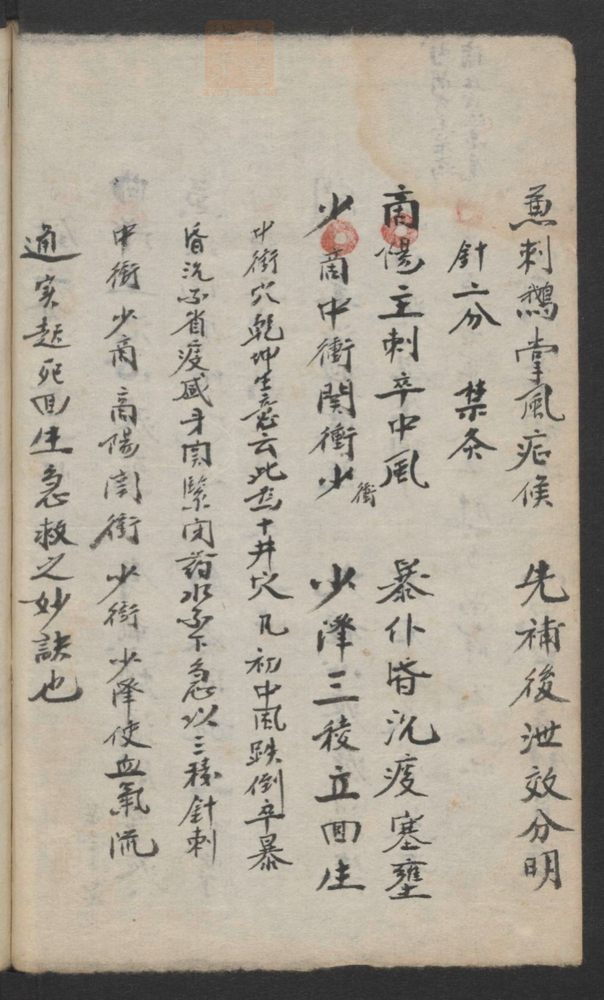 兼刺鵝掌風疕候　先補後泄效分明
針二分　禁灸
商陽主刺卒中風　暴仆昏沉痰塞壅
少商中衝関衝少衝　少澤三稜立回生
中衝穴乾坤生意云此為十井穴凡初中風跌倒卒暴
昏沉不省痰盛牙関緊闭药水不下急以三稜針刺
中衝少商商陽関衝少衝少澤使血氣流
通实起死回生急救之妙訣也